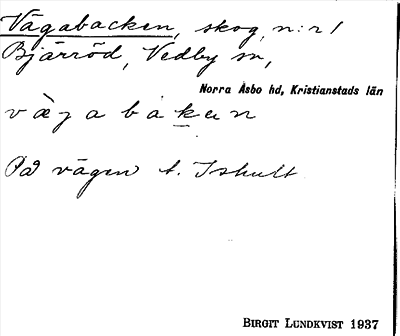 Vägabacken, skog, n:r 1
Bjärröd, Vedby sn,
Norra Åsbo hd, Kristianstads län
På vägen t. Ishult
BIRGIT LUNDKVIST 1937